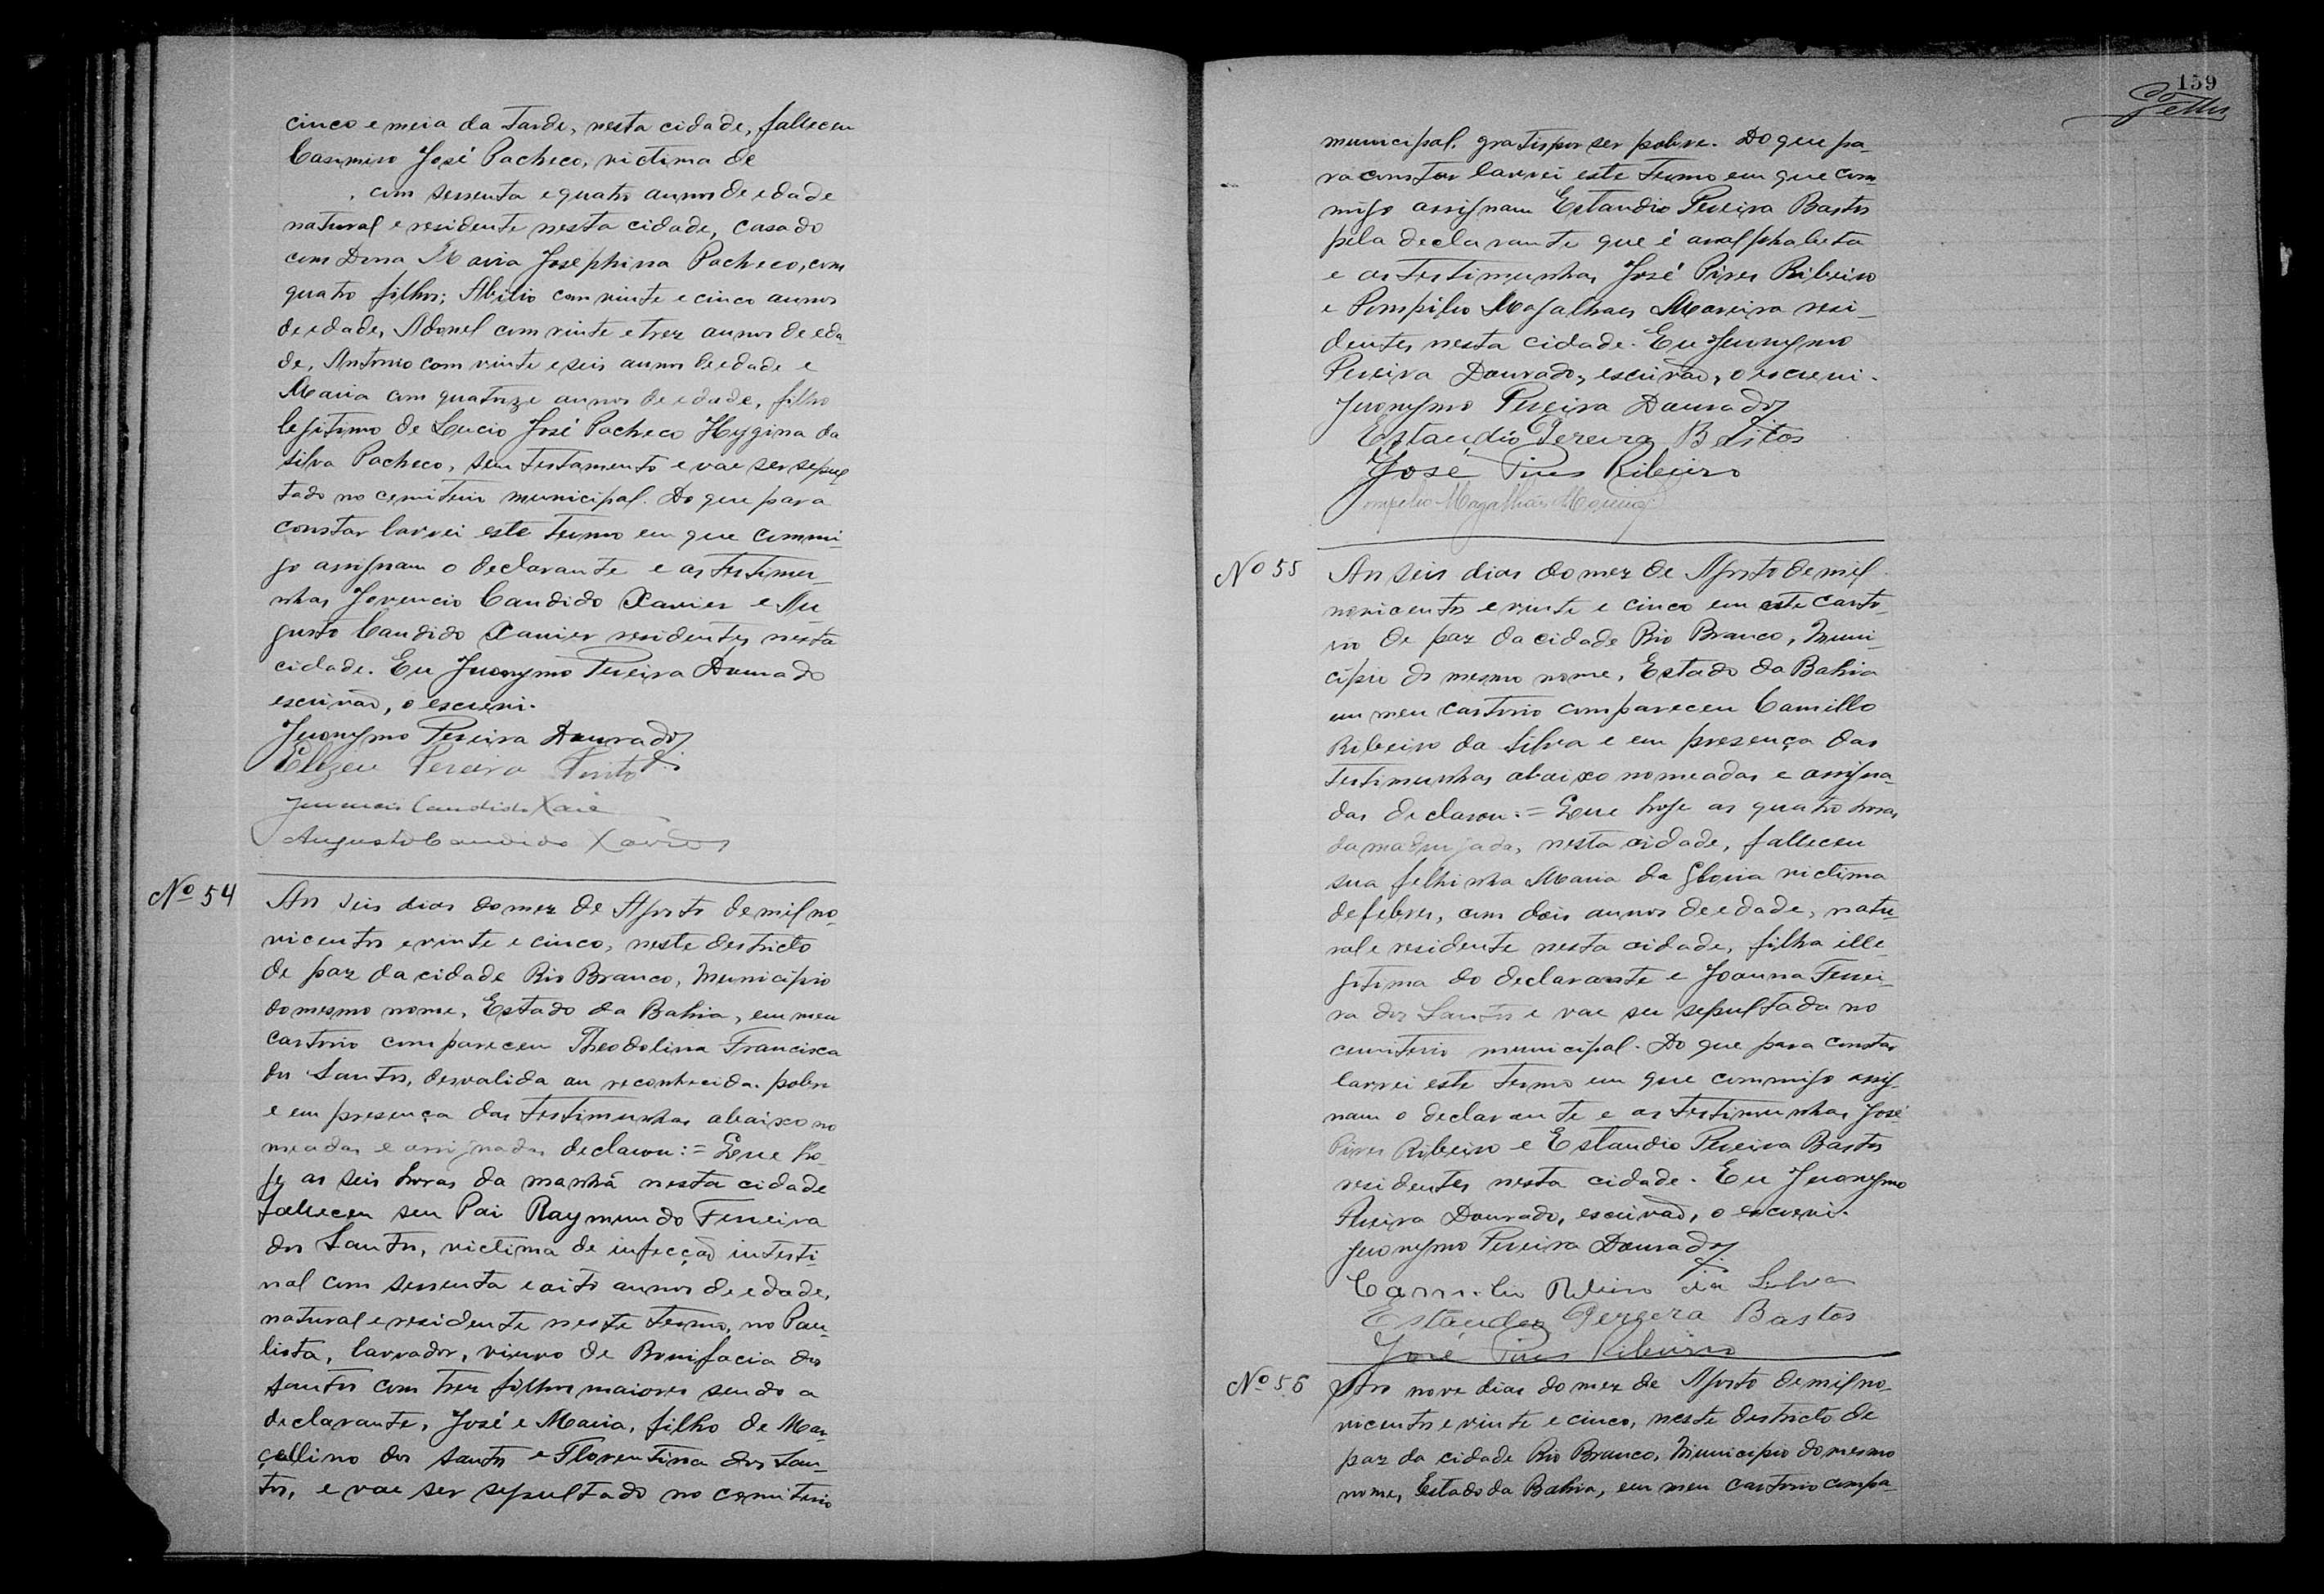 cinco e meia da tarde, nesta cidade, falleceu
Casimiro José Pacheco, victima de
, com sessenta e quatro annos de edade
natural e residente nesta cidade, casado
com Dona Maria Josephina Pacheco, com
quatro filhos; Abilio com vinte e cinco annos
de edade, Adonel com vinte e trez annos de eda
de, Antonio com vinte e seis annos de edade e
Maria com quatorze annos de edade, filho
legitimo de Lucio José Pacheco Hygina da
Silva Pacheco, sem testamento e vae ser sepul
tado no cemiterio municipal. Do que para
constar lavrei este termo em que commi-
go assignam o declarante e as testimu-
nhas Juvencio Candido Xavier e Au
gusto Candido Xavier residentes nesta
cidade. Eu Jeronymo Pereira Dourado
escrivão, o escrevi.
Jeronymo Pereira Dourado
Elizeu Pereira Pinto
Juvencio Candido Xavie
Augusto Candido Xavier
Nº 54
Aos seis dias do mez de Agosto de mil no-
vicentos e vinte e cinco, neste destricto
de paz da cidade Rio Branco, Municipio
do mesmo nome, Estado da Bahia, em meu
cartorio compareceu Theodolina Francisca
dos Santos, desvalida au reconhecida pobre
e em presença das testimunhas abaixo no
meadas e assignadas declarou:= Que ho-
je as seis horas da manhã nesta cidade
falleceu seu Pai Raymundo Ferreira
dos Santos, victima de infecção intesti-
nal com sessenta e oito annos de edade,
natural e residente neste termo, no Pau-
lista, lavrador, viuvo de Bonifacia dos
Santos com trez filhos maiores sendo a
declarante, José e Maria, filho de Mar
çellino dos Santos e Florentina dos San-
tos, e vae ser sepultado no cemiterio
159
municipal, gratis por ser pobre. Do que pa-
ra constar lavrei este termo em que com
migo assignam Estaudio Pereira Bastos
pela declarante que é analphabeta
e as testimunhas José Pires Ribeiro
e Pompilio Magalhaes Moreira resi-
dentes nesta cidade. Eu Jeronymo
Pereira Dourado, escrivão, o escrevi.
Jeronymo Pereira Dourado
Estaudio Pereira Bastos
José Pires Ribeiro
Pompilio Magalhães Moreira
Nº 55
Aos seis dias do mez de Agosto de mil
novicentos e vinte e cinco em este carto-
rio de paz da cidade Rio Branco, Muni-
cipio do mesmo nome, Estado da Bahia
em meu cartorio compareceu Camillo
Ribeiro da Silva e em presença das
testimunhas abaixo nomeadas e assigna-
das declarou:= Que hoje as quatro horas
da madrugada, nesta cidade, falleceu
sua filhinha Maria da Gloria victima
de febres, com dois annos de edade, natu-
ral e residente nesta cidade, filha ille-
gitima do declarante e Joanna Ferrei-
ra dos Santos e vae ser sepultada no
cemiterio municipal. Do que para constar
lavrei este termo em que commigo assig-
nam o declarante e as testimunhas José
Pires Ribeiro e Estaudio Pereira Bastos
residentes nesta cidade. Eu Jeronymo
Pereira Dourado, escrivão, o escrevi.
Jeronymo Pereira Dourado
Camillo Ribeiro da Silva
Estaudio Pereira Bastos
José Pires Ribeiro
Nº 56
Aos nove dias do mez de Agosto de mil no-
vicentos e vinte e cinco, neste destricto de
paz da cidade Rio Branco, Municipio do mesmo
nome, Estado da Bahia, em meu cartorio compa-